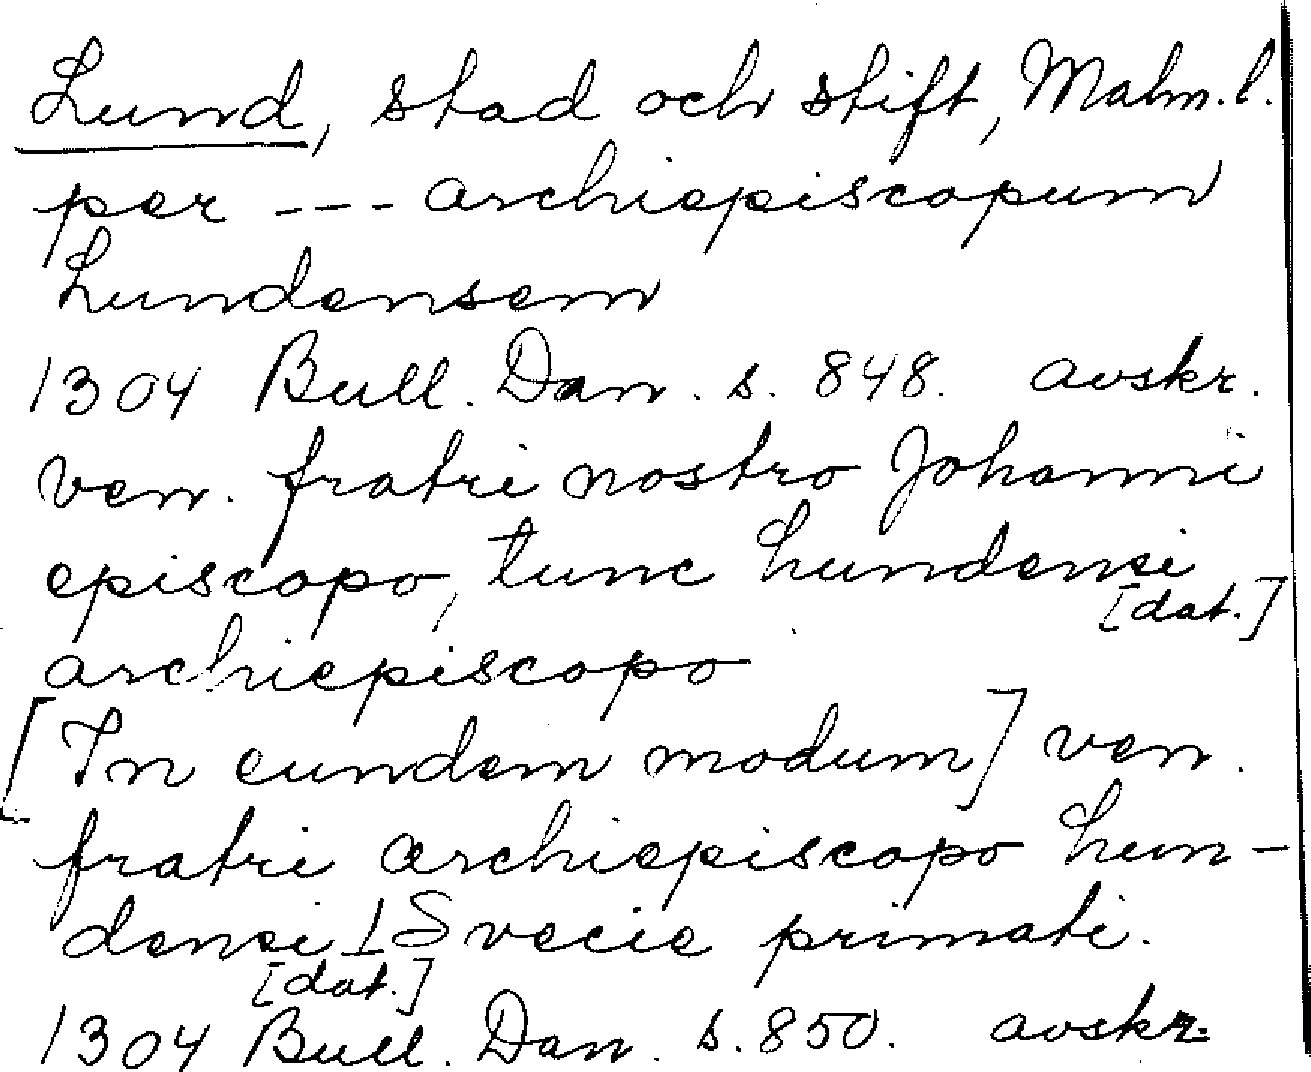 Lund, stad och stift, Malm. l.
per --- archiepiscopum
Lundensem
1304 Bull. Dan. s. 848. avskr.
ven. fratri nostro Johanni
episcopo, tunc Lundensi
[dat.]
archiepiscopo
[In eundem modum] ven.
fratri archiepiscopo Lun-
densi ⊥ Svecie primati.
[dat.]
1304 Bull. Dan. s. 850. avskr.